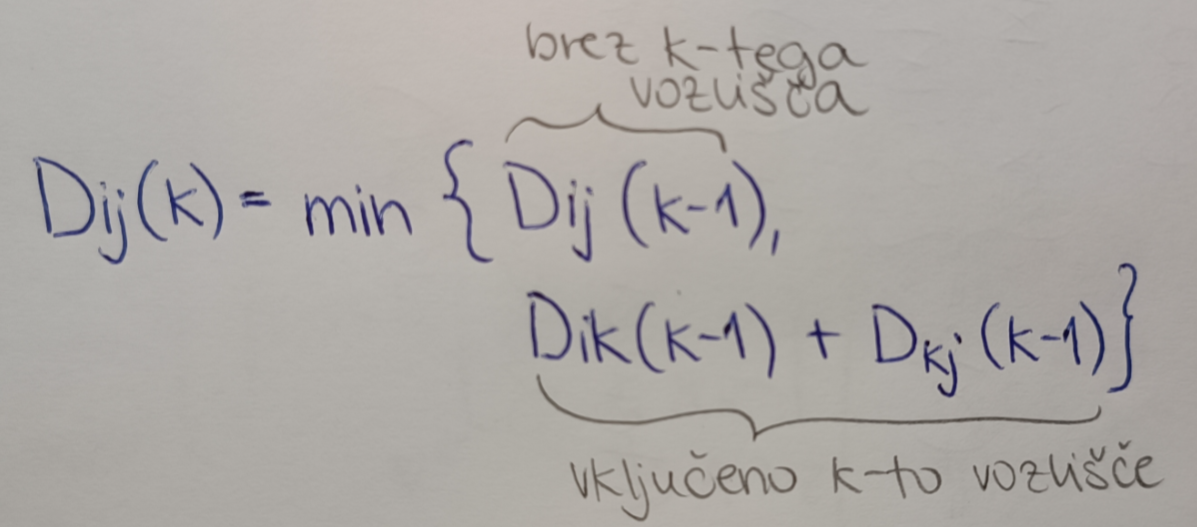 brez k-tega
vozlišča
Dij(k) = min { Dij (k-1),
Dik(k-1) + Dkj (k-1) }
vključeno k-to vozlišče